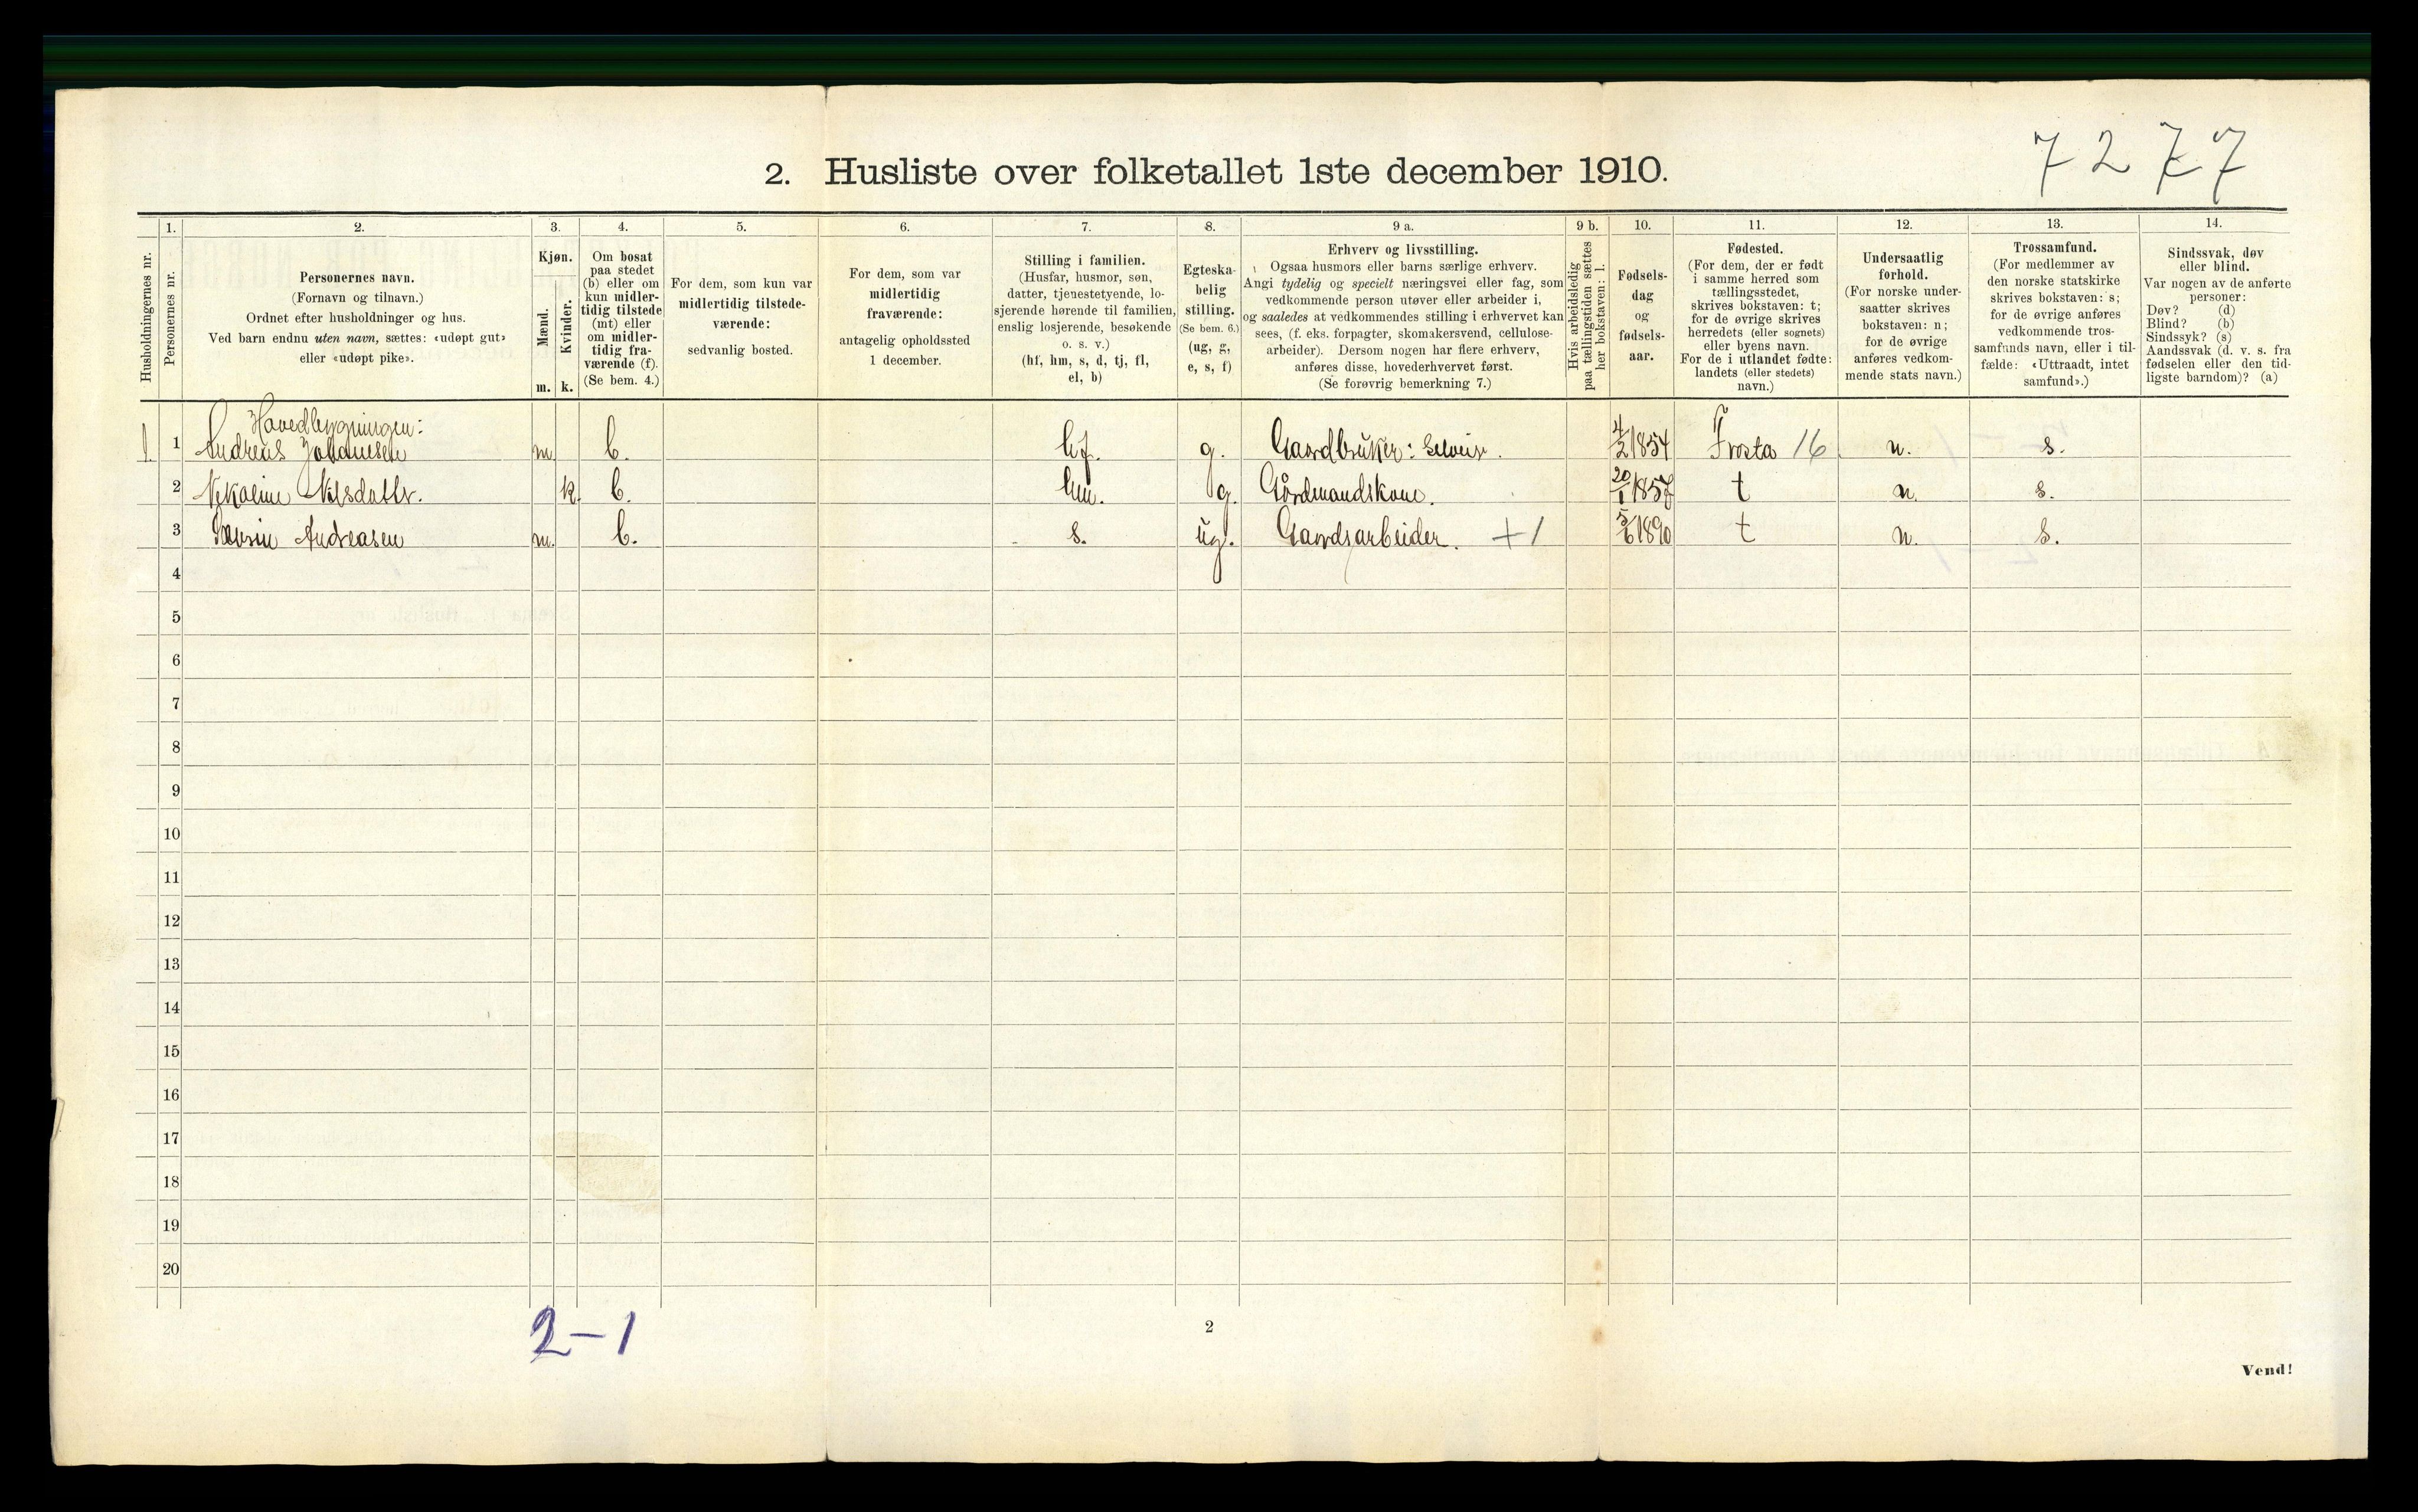 7277
2. Husliste over folketallet 1ste december 1910.
Husholdningernes nr.
1.
Personernes nr.
2.
Personernes navn.
(Fornavn og tilnavn.)
Ordnet efter husholdninger og hus.
Ved barn endnu uten navn, sættes: «udøpt gut»
eller «udøpt pike».
3.
Kjøn.
Mænd.
Kvinder.
m. k.
4.
Om bosat
paa stedet
(b) eller om
kun midler-
tidig tilstede
(mt) eller
om midler-
tidig fra-
værende (f).
(Se bem. 4.)
5.
For dem, som kun var
midlertidig tilstede-
værende:
sedvanlig bosted.
6.
For dem, som var
midlertidig
fraværende:
antagelig opholdssted
1 december.
7.
Stilling i familien.
(Husfar, husmor, søn,
datter, tjenestetyende, lo-
sjerende hørende til familien,
enslig losjerende, besøkende
o. s. v.)
(hf, hm, s, d, tj, fl,
el, b)
8.
Egteska-
belig
stilling.
(Se bem. 6.)
(ug, g,
e, s, f)
9 a.
Erhverv og livsstilling.
Ogsaa husmors eller barns særlige erhverv.
Angi tydelig og specielt næringsvei eller fag, som
vedkommende person utøver eller arbeider i,
og saaledes at vedkommendes stilling i erhvervet kan
sees, (f. eks. forpagter, skomakersvend, cellulose-
arbeider). Dersom nogen har flere erhverv,
anføres disse, hovederhvervet først.
(Se forøvrig bemerkning 7.)
9 b.
Hvis arbeidsledig
paa tællingstiden sættes
her bokstaven: l.
10.
Fødsels-
dag
og
fødsels-
aar.
11.
Fødested.
(For dem, der er født
i samme herred som
tællingsstedet,
skrives bokstaven: t;
for de øvrige skrives
herredets (eller sognets)
eller byens navn.
For de i utlandet fødte:
landets (eller stedets)
navn.)
12.
Undersaatlig
forhold.
(For norske under-
saatter skrives
bokstaven: n;
for de øvrige
anføres vedkom-
mende stats navn.)
13.
Trossamfund.
(For medlemmer av
den norske statskirke
skrives bokstaven: s;
for de øvrige anføres
vedkommende tros-
samfunds navn, eller i til-
fælde: «Uttraadt, intet
samfund».)
14.
Sindssvak, døv
eller blind.
Var nogen av de anførte
personer:
Døv? (d)
Blind? (b)
Sindssyk? (s)
Aandssvak (d. v. s. fra
fødselen eller den tid-
ligste barndom)? (a)
Hovedbygningen:
1 1 Andreas Johansen m. b. hf. g. Gaardbruker: Selveier. 4/2 1854 Frosta 16 n. s.
2 Nikoline Nilsdatter. k. b. hm. g. Gårdmandskone. 20/1 t n. s.
3 Andreasen m. b. s. ug. Gaardsarbeider. +1 5/6 1890 t n. s.
4
5
6
7
8
9
10
11
12
13
14
15
16
17
18
19
20
2-1
2
Vend!